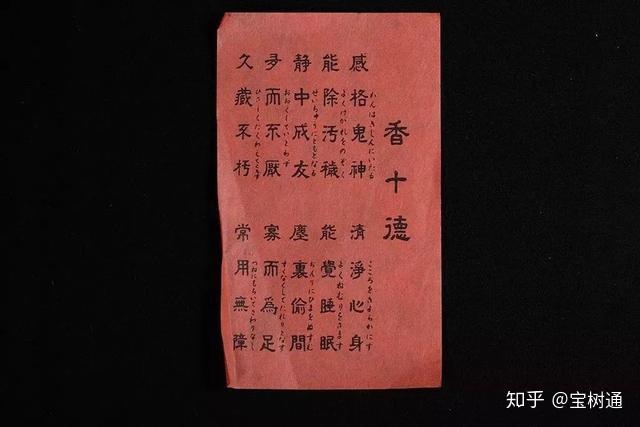 香十德
感格鬼神 清淨心身
かんはきじんにいたる こころをきよらかにす
能除汚穢 能覺睡眠
よくけがれをのぞく よくねむりをさます
静中成友 塵裏偷間
せいちゅうにともとなる ぢんりにひまをぬすむ
多而不厭 寡而為足
おおくしていとわず すくなくしてたれりとなす
久蔵不朽 常用無障
ひさしくたくわえてくちず つねにもちいてさわりなし
知乎 @宝树通